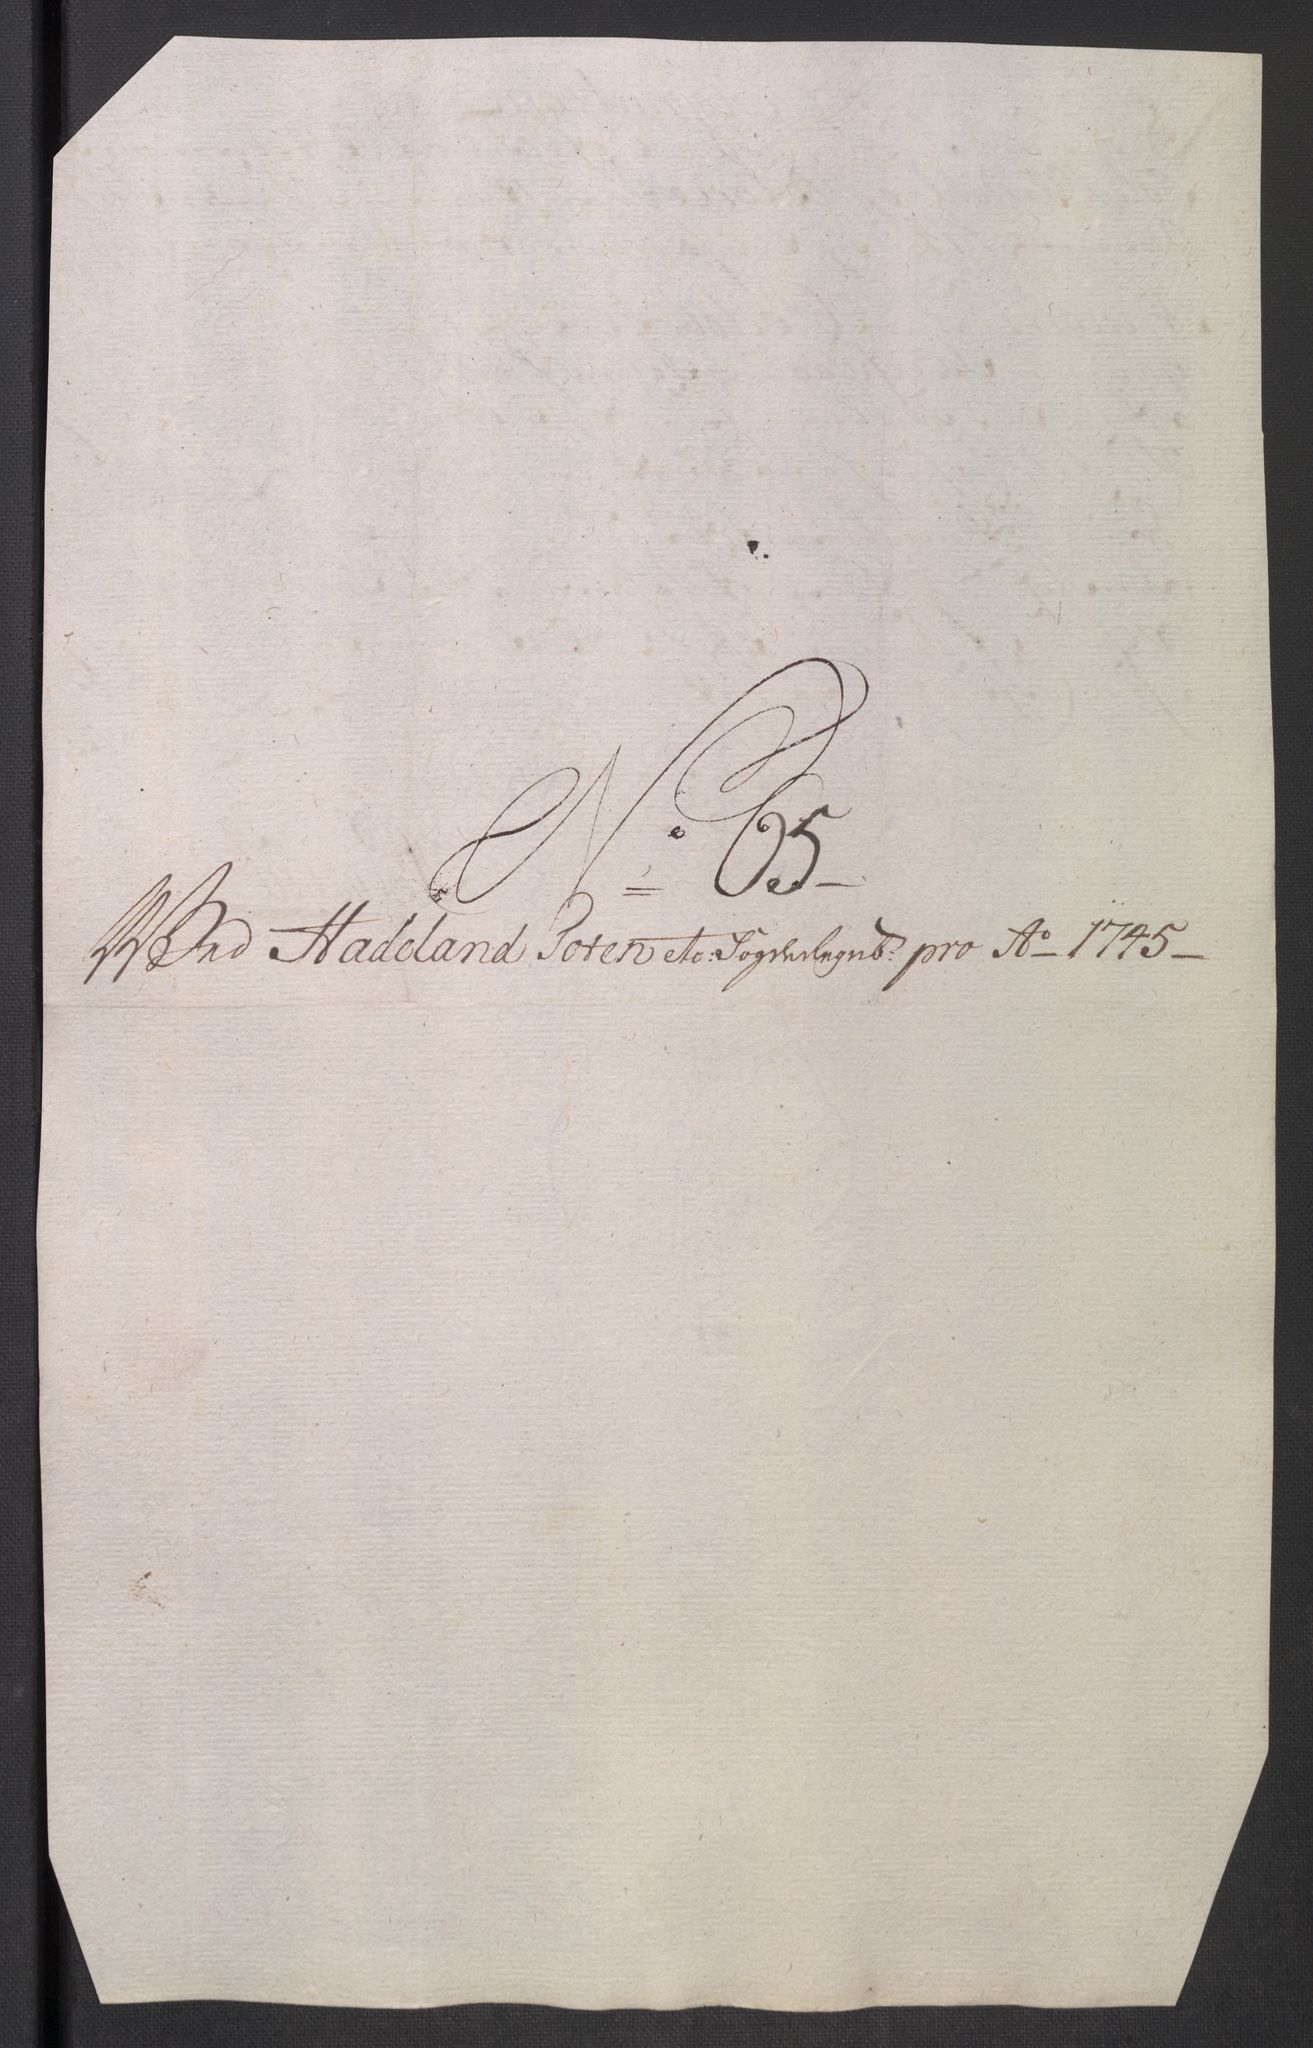 No 65
Wed Hadeland Toten etc: Fogderiegnsk: pro Ao 1745